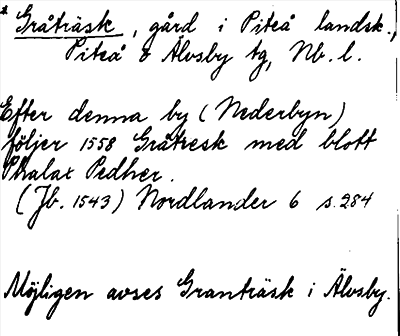 Gråträsk, gård i Piteå landsk.,
Piteå & Älvsby tg, Nb. l.
Efter denna by (Nederbyn)
följer 1558 Gråtresk med blott
Skalax Pedher.
(Jb. 1543) Nordlander 6 s. 284
Möjligen avses Granträsk i Älvsby.